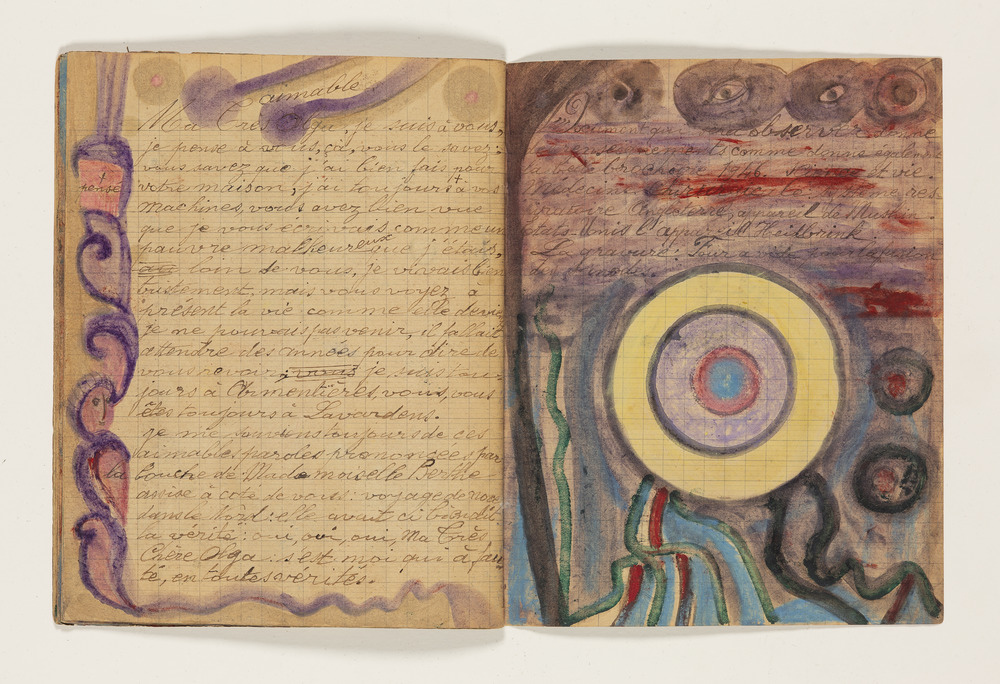 aimable
Ma Très Olga, je suis à vous,
je pense à vous, ça, vous le savez:
vous savez que j'ai bien fais pour
votre maison, j'ai toujours été à vos
machines, vous avez bien vue
que je vous ecrivais comme un
pauvre malheureux que j'étais,
loin de vous, je vivais bien
tristement, mais vous voyez à
présent la vie comme elle devie,
je ne pouvais pas venir, il fallait
attendre des années pour dire de
vous revoir; vous je suis tou-
jours à Armentières, vous, vous
êtes toujours à Lavardens.
je me souviens toujours de ces
aimables paroles prononcées par
la bouche de Mademoiselle Berthe
assise à coté de vous: voyage de noce
dans le Nord: elle avait ci bien dit
la verité: oui, oui, oui, Ma Très
Chère Olga: s'est moi qui à fau-
té, en toutes verités.
pensé
Document qui observer donne
comme donne égaleme
la vere brochure 1946. et vie.
Médecine Chirurgie res-
piratoire Angleterre, appareil de
états Unis l'appareil Heilbrink.
La gravure. Tour à vide